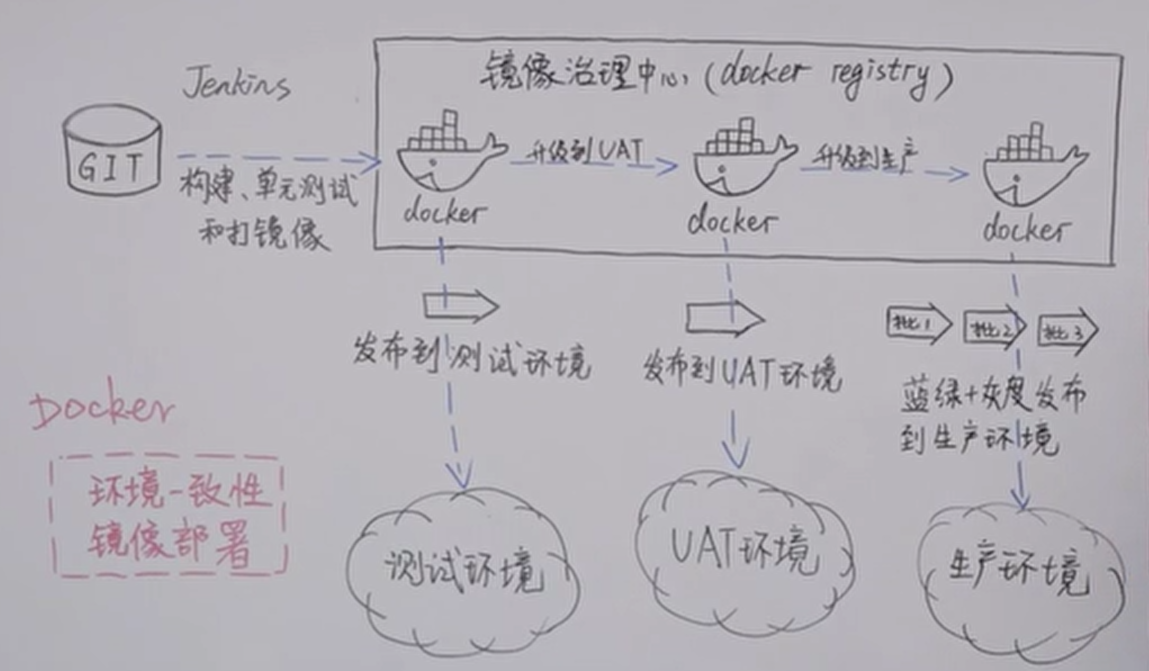 镜像治理中心(docker registry)
Jenkins
GIT
构建、单元测试
和打镜像
docker
升级到UAT
docker
升级到生产
docker
发布到测试环境
发布到UAT环境
批1
批2
批3
蓝绿+灰度发布
到生产环境
Docker
环境一致性
镜像部署
测试环境
UAT环境
生产环境